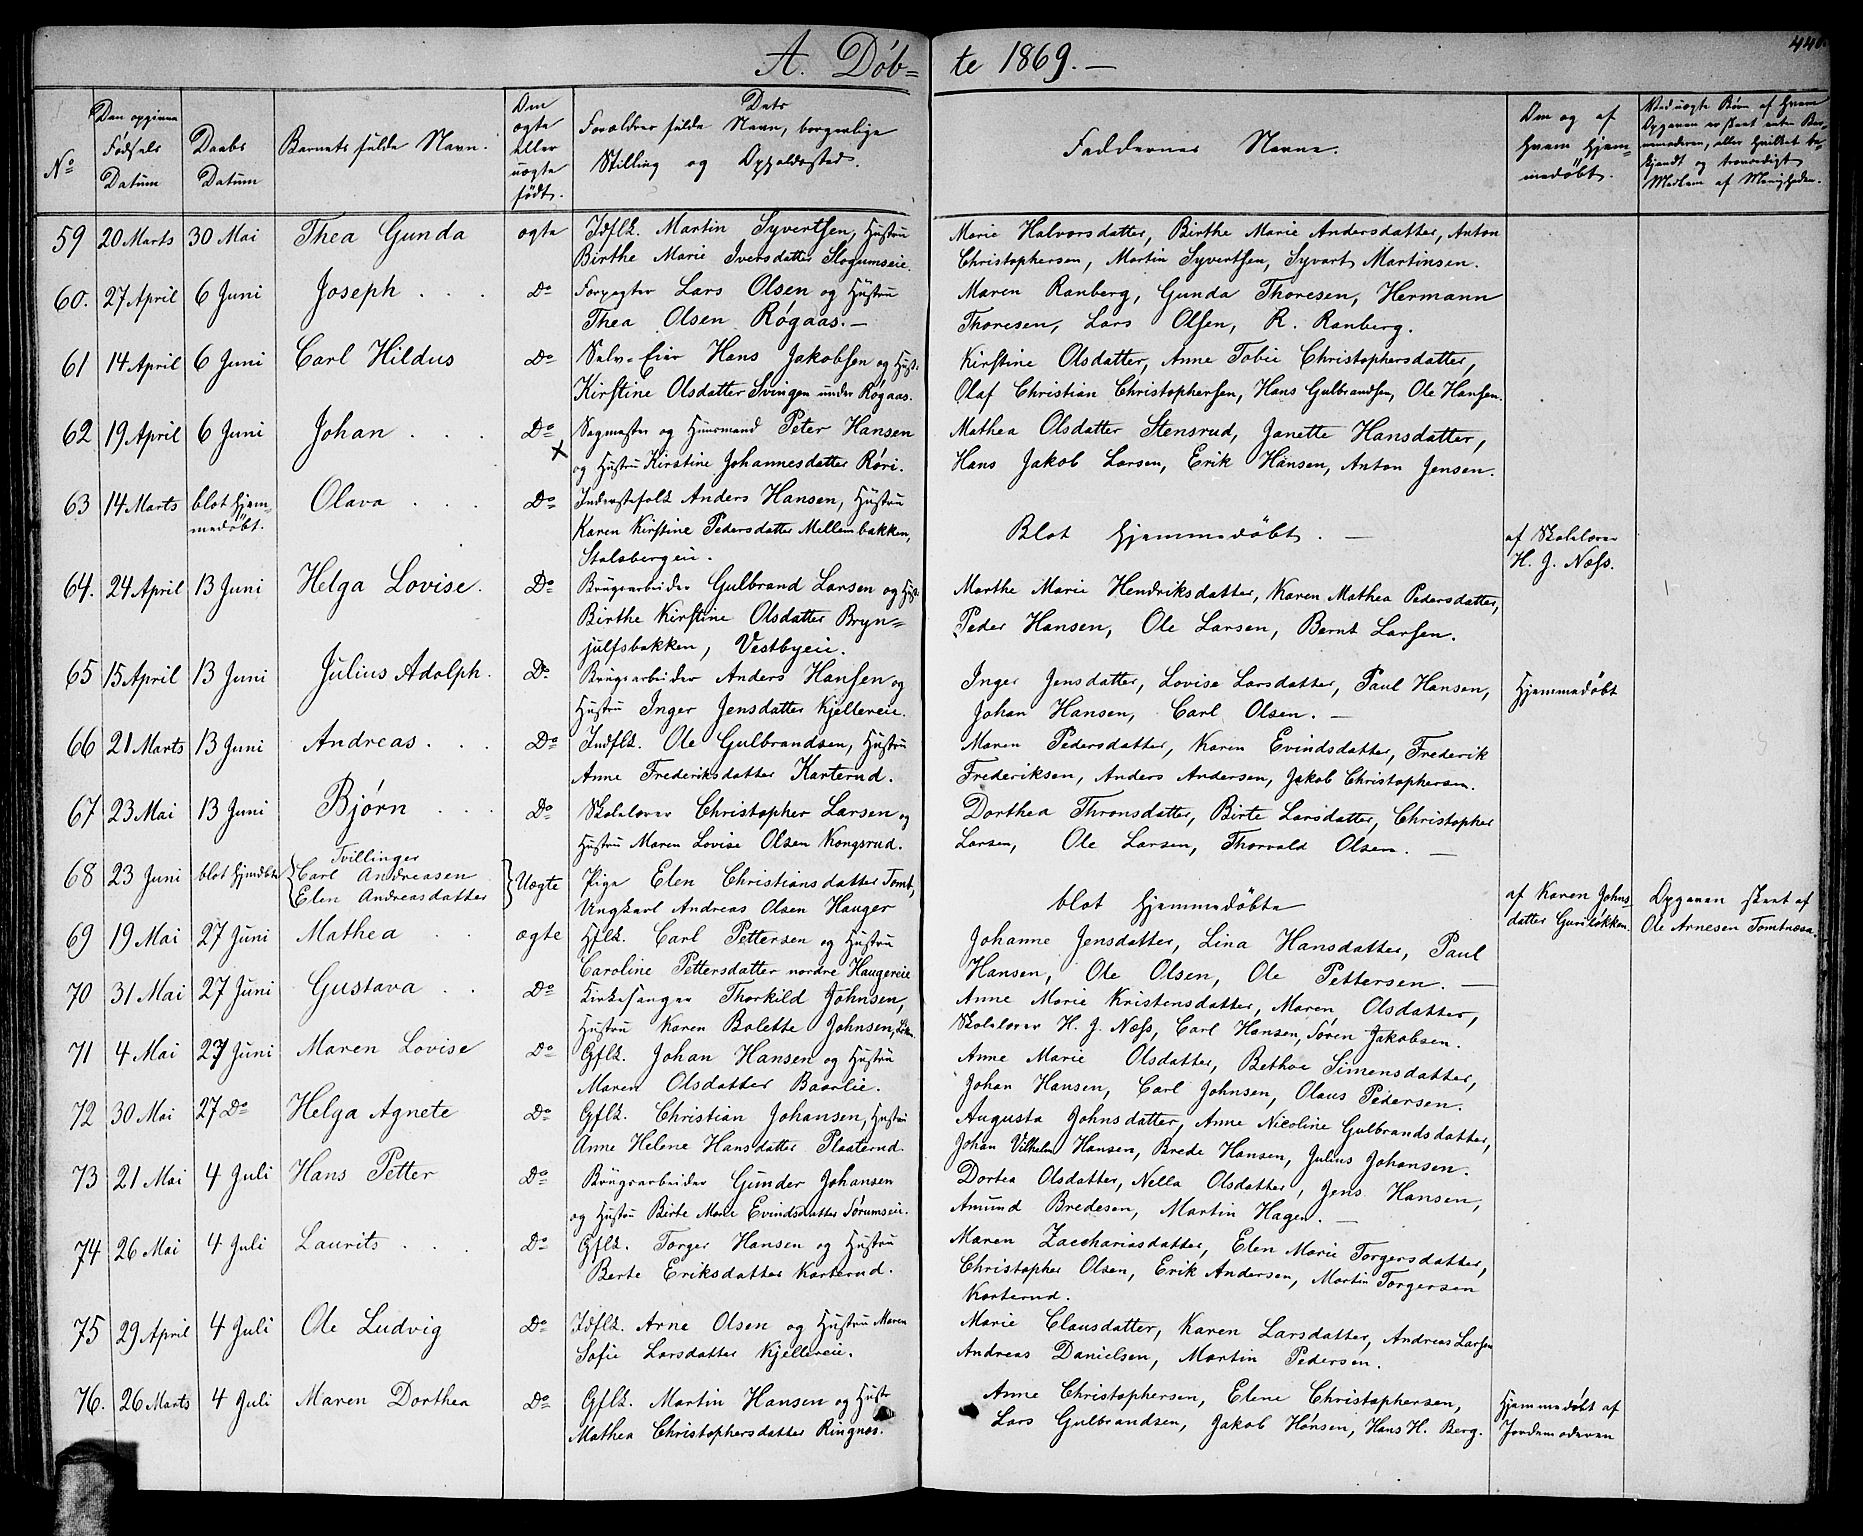 A. Døb=te 1869. —
440.
No
Den opgivne Fødsels Datum
Daabs Datum
Barnets fulde Navn.
Om ægte eller uægte født.
Dets Forældres fulde Navn, borgerlige Stilling og Opholdssted.
Faddernes Navne.
Om og af Hvem hjemmedøbt.
Ved uægte Børn af Hvem Opgaven er skeet enten Barnemoderen, eller Hvilket bekjendt og troværdigt Medlem af Menigheden.
59 20 Marts 30 Mai Thea Gunda ægte Idflk. Martin Syvertsen, Hustru Marie Halvorsdatter, Birthe Marie Andersdatter, Anton
Birthe Marie Iversdatter Slogumseie. Christophersen, Martin Syvertsen, Syvert Martinsen.
60. 27 April 6 Juni Joseph . . . Do Forpagter Lars Olsen og Hustru Maren Ranberg, Gunda Thoresen, Hermann
Thea Olsen Røgaas. — Thoresen, Lars Olsen, R. Ranberg.
61 14 April 6 Juni Carl Hildus Do Selv-Eier Hans Jakobsen og Hust. Kirstine Olsdatter, Anne Tobie Christophersdatter,
Kirstine Olsdatter Svingen under Røgaas. Olaf Christian Christophersen, Hans Gulbrandsen, Ole Hansen.
62 19 April 6 Juni Johan . . . Do Sagmester og Huusmand Peter Hansen Mathea Olsdatter Stensrud, Janette Hansdatter,
x og Hustru Kirstine Johannesdatter Røri. Hans Jakob Larsen, Erik Hansen, Anton Jensen.
63 14 Marts blot hjem- Olava . . . Do Inderstefolk Anders Hansen, Hustru
medøbt. Karen Kirstine Pedersdatter Mellembakken, Blot hjemmedøbt. — af Skolelærer
Stalsbergeie. H. J. Næss.
64. 24 April 13 Juni Helga Lovise. Do Brugsarbeider Gulbrand Larsen og Hust. Marthe Marie Hendriksdatter, Karen Mathea Pedersdatter,
Birthe Kirstine Olsdatter Bryn= Peder Hansen, Ole Larsen, Bernt Larsen.
julfsbakken, Vestbyeie.
65 15 April 13 Juni Julius Adolph. Do Brugsarbeider Anders Hansen og Inger Jensdatter, Lovise Larsdatter, Paul Hansen, Hjemmedøbt
Hustru Inger Jensdatter Kjellereie. Johan Hansen, Carl Olsen. —
66 21 Marts 13 Juni Andreas. . . Do Indflk. Ole Gulbrandsen, Hustru Maren Pedersdatter, Karen Evindsdatter, Frederik
Anne Frederiksdatter Karterud. Frederiksen, Anders Andersen, Jakob Christophersen.
67 23 Mai 13 Juni Bjørn . . . Do Skolelærer Christopher Larsen og Dorthea Thronsdatter, Birte Larsdatter, Christopher
Hustru Maren Lovise Olsen Kongsrud. Larsen, Ole Larsen, Thorvald Olsen. —
Tvillinger
68 23 Juni blot hjemdøbte Carl Andreasen Uægte Pige Elen Christiansdatter Tomt,
Elen Andreasdatter Ungkarl Andreas Olsen Hauger blot hjemmedøbte af Karen Johns- Opgaven skeet af
datter Guriløkken. Ole Arnesen Tomtnæsa.
69 19 Mai 27 Juni Mathea . . ægte Hflk. Carl Pettersen og Hustru Johanne Jensdatter, Lina Hansdatter, Paul
Caroline Pettersdatter nordre Haugereie Hansen, Ole Olsen, Ole Pettersen. —
70 31 Mai 27 Juni Gustava . . Do Kirkesanger Thorkild Johnsen, Anne Marie Kristensdatter, Maren Olsdatter,
Hustru Karen Bolette Johnsen, Skolelærer H. J. Næss, Carl Hansen, Søren Jakobsen.
71 4 Mai 27 Juni Maren Lovise Do Gflk. Johan Hansen og Hustru Anne Marie Olsdatter, Bethoe Simensdatter,
Maren Olsdatter Baarlie. Johan Hansen, Carl Johnsen, Olaus Pedersen.
72 30 Mai 27 Do Helga Agnete Do Gflk. Christian Johansen, Hustru Augusta Johnsdatter, Anne Nicoline Gulbrandsdatter,
Anne Helene Hansdatter Plaaterud. Johan Vilhelm Hansen, Brede Hansen, Julius Johansen.
73 21 Mai 4 Juli Hans Petter Do Brugsarbeider Gunder Johansen Dortea Olsdatter, Nella Olsdatter, Jens Hansen,
og Hustru Birte Marie Evindsdatter Sørumseie. Amund Bredesen, Martin Hagen. —
74 26 Mai 4 Juli Laurits . . . Do Gflk. Torger Hansen og Hustru Maren Zacchariasdatter, Elen Marie Torgersdatter,
Berte Eriksdatter Karterud. Christopher Olsen, Erik Andersen, Martin Torgersen
Karterud.
75 29 April 4 Juli Ole Ludvig Do Idflk. Arne Olsen og Hustru Maren Marie Clausdatter, Karen Larsdatter, Andreas Larsen
Sofie Larsdatter Kjellereie. Andreas Danielsen, Martin Pedersen.
76. 26 Marts 4 Juli Maren Dorthea Do Gflk. Martin Hansen og Hustr Anne Christophersen, Elene Christophersen, Hjemmedøbt af
Mathea Christophersdatter Ringnæs. Lars Gulbrandsen, Jakob Hansen, Hans H. Berg. Jordemoderen